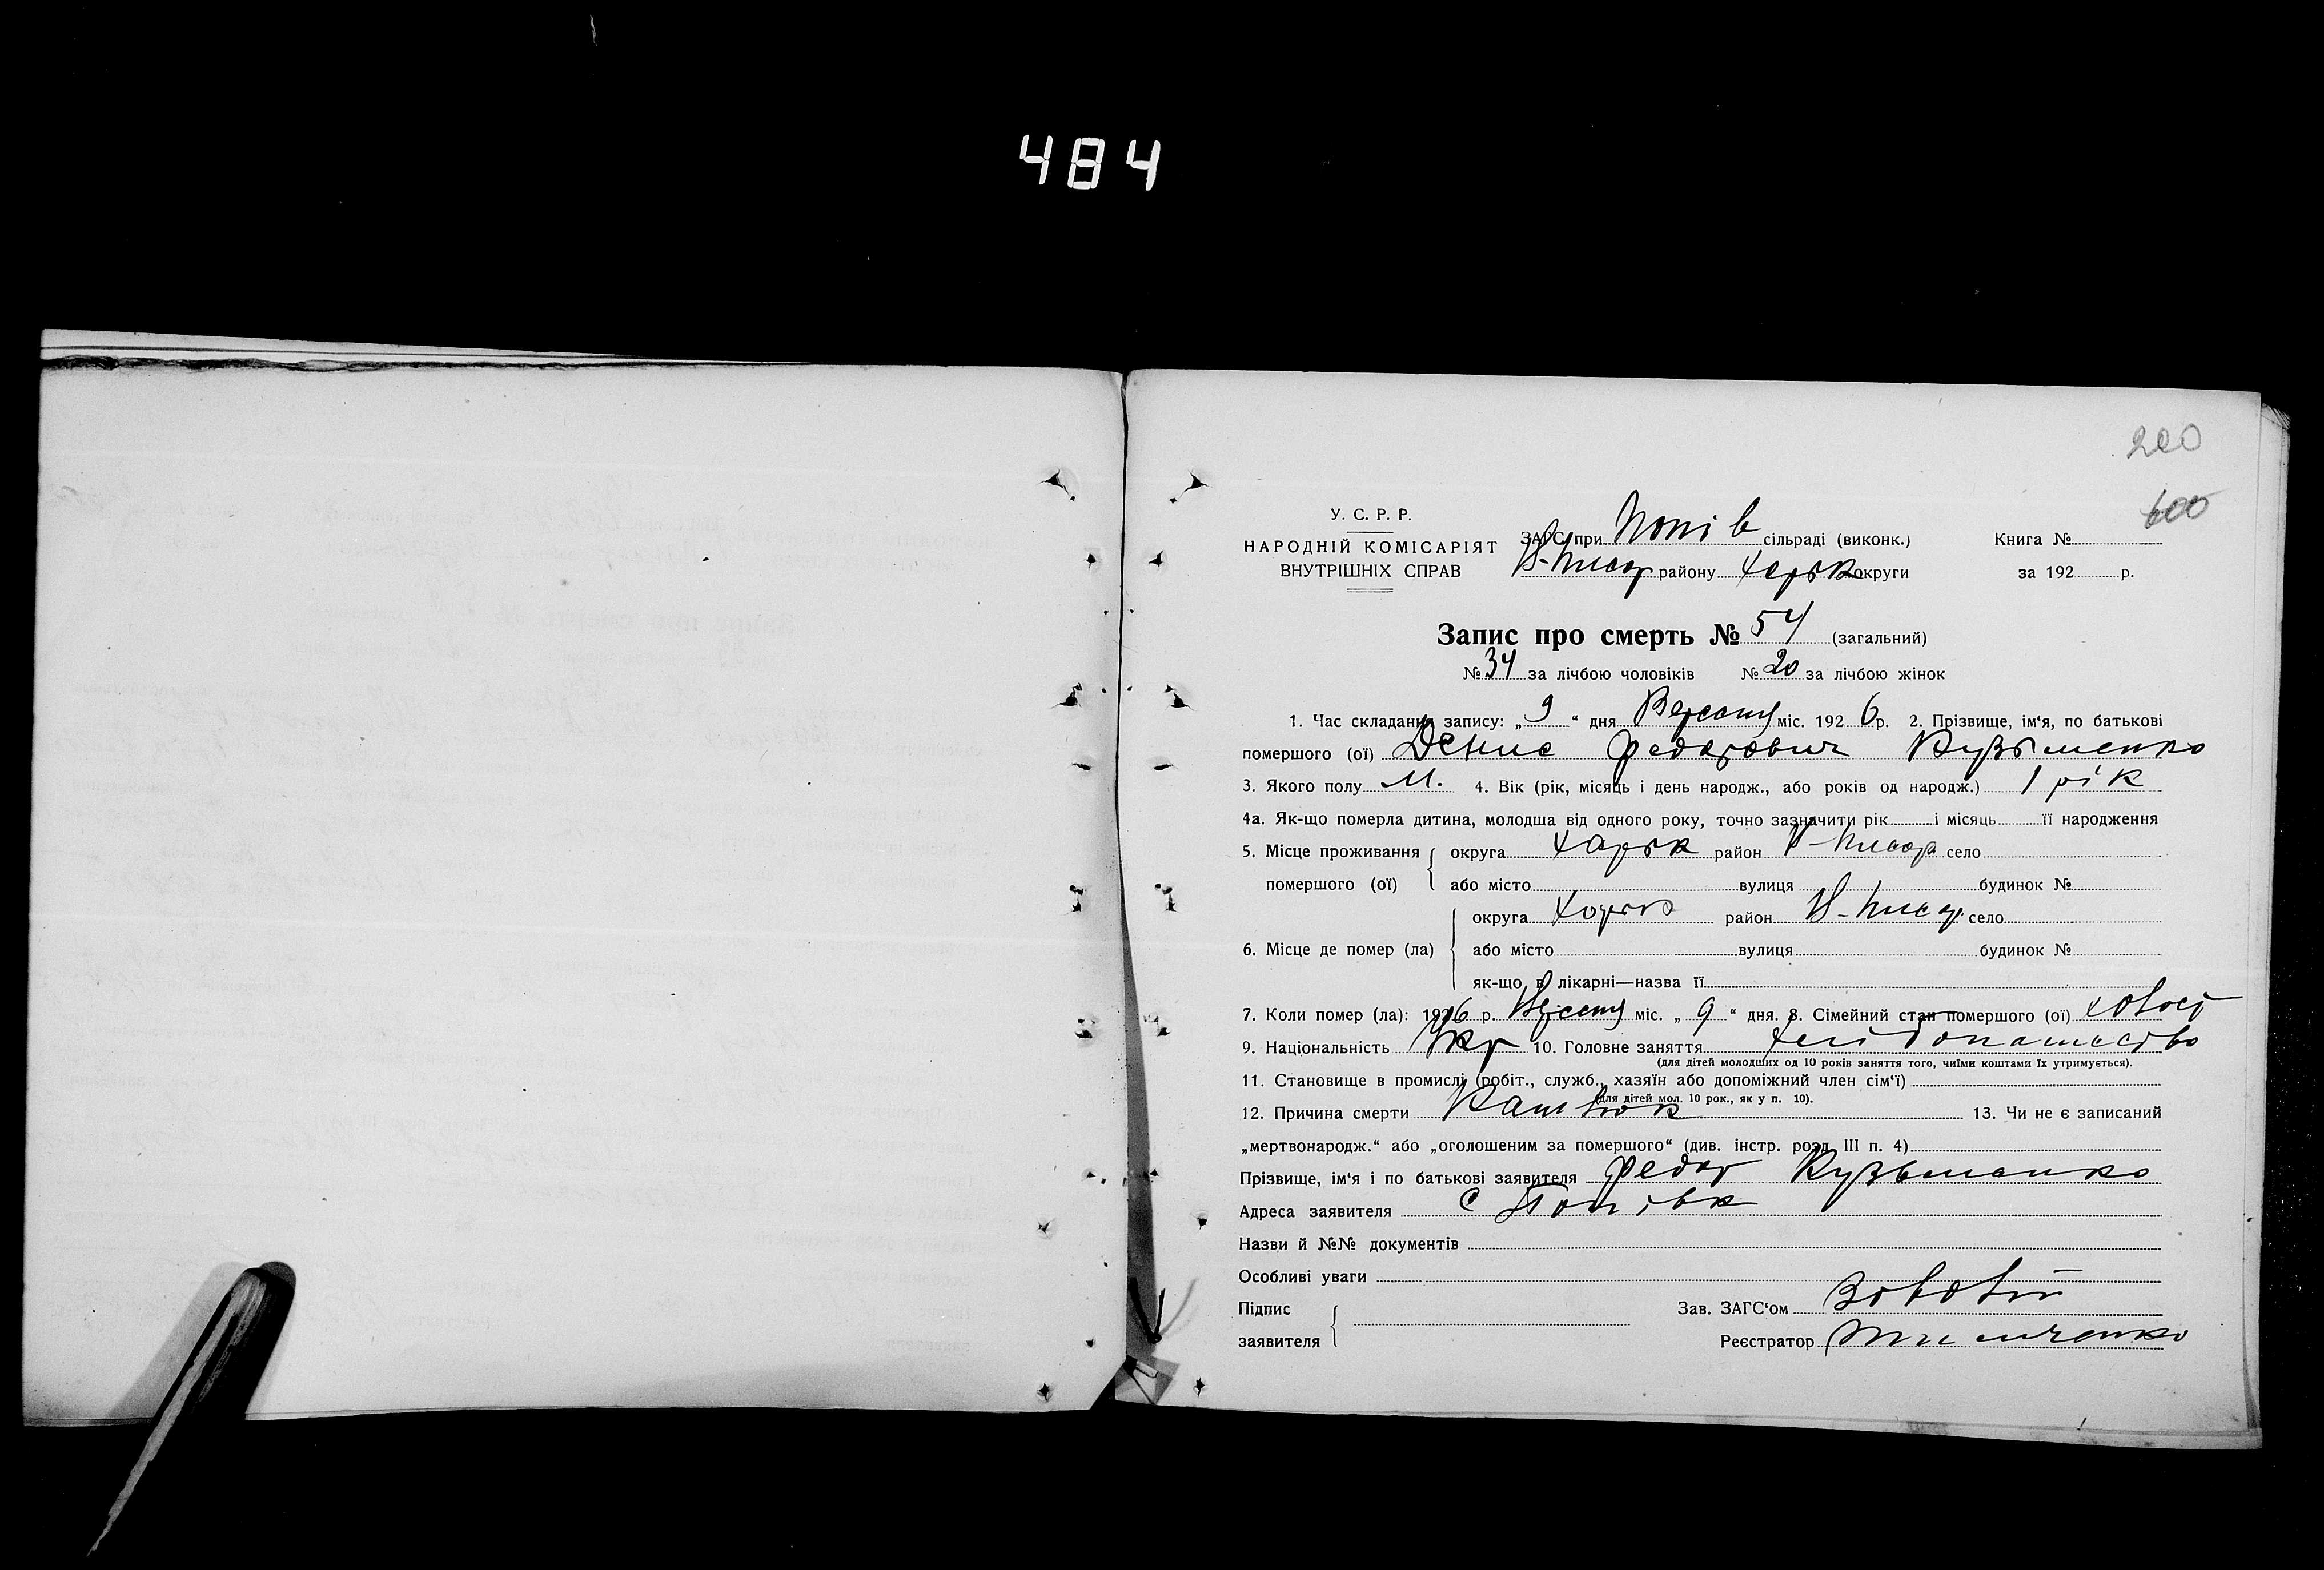 484
200
600
У. С. Р. Р.
НАРОДНІЙ КОМІСАРІЯТ
ВНУТРІШНІХ СПРАВ
ЗАГС при Попів сільраді (виконк.)
Н-Писар району Харьк округи
Книга №
за 192 р.
Запис про смерть № 54 (загальний)
№ 34 за лічбою чоловіків № 20 за лічбою жінок
1. Час складання запису: „ 9 “ дня Вересня міс. 192 6 р. 2. Прізвище, ім‘я, по батькові
помершого (ої) Денис Федорович Кузьменко
3. Якого полу М. 4. Вік (рік, місяць і день народж., або років од народж.) 1 рік
4а. Як-що померла дитина, молодша від одного року, точно зазначити рік і місяць її народження
5. Місце проживання помершого (ої) округа Харьк район Н-Писар село
або місто вулиця будинок №
6. Місце де помер (ла) округа Харьк район Н-Писар. село
або місто вулиця будинок №
як-що в лікарні—назва її
7. Коли помер (ла): 1926 р. Вересня міс. „ 9 “ дня. 8. Сімейний стан помершого (ої)
9. Національність Укр 10. Головне заняття
(для дітей молодших од 10 років заняття того, чиїми коштами їх утримується).
11. Становище в промислі (робіт., служб., хазяїн або допоміжний член сім‘ї)
(для дітей мол. 10 рок., як у п. 10).
12. Причина смерти Кашлюк 13. Чи не є записаний
„мертвонародж.“ або „оголошеним за помершого“ (див. інстр. розд. III п. 4)
Прізвище, ім‘я і по батькові заявителя Федор Кузьменко
Адреса заявителя с Попівк
Назви й №№ документів
Особливі уваги
Підпис заявителя
Зав. ЗАГС‘ом
Реєстратор Тимченко